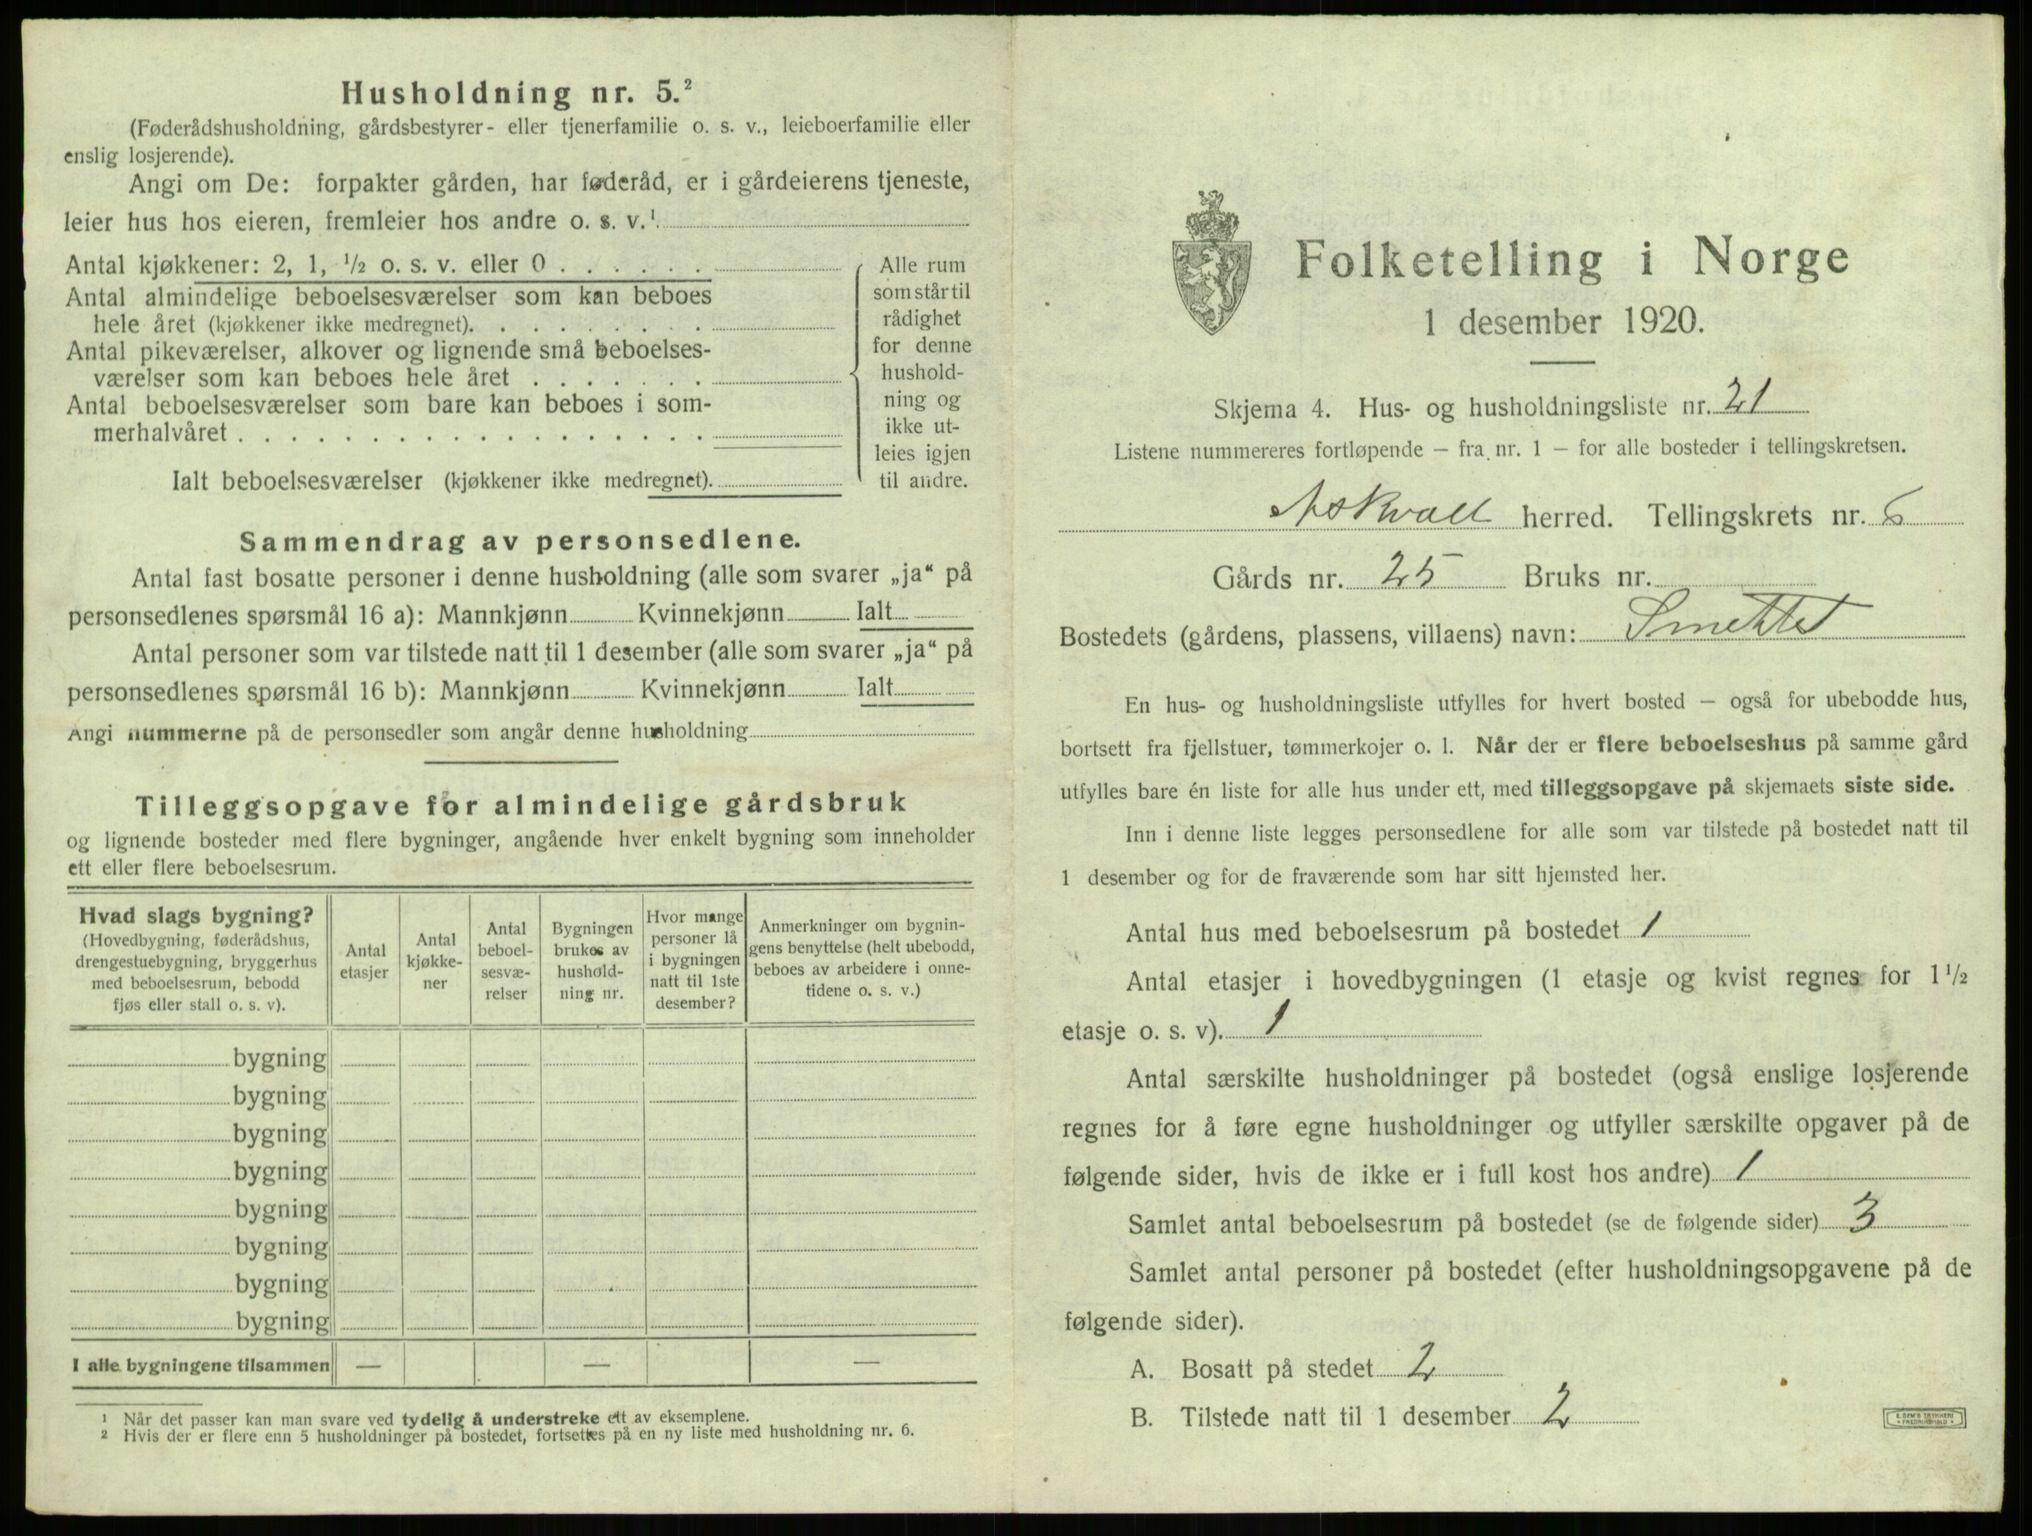 Husholdning nr. 5.²
(Føderådshusholdning, gårdsbestyrer- eller tjenerfamilie o. s. v., leieboerfamilie eller
enslig losjerende).
Angi om De: forpakter gården, har føderåd, er i gårdeierens tjeneste,
leier hus hos eieren, fremleier hos andre o. s. v.¹
Antal kjøkkener: 2, 1, ½ o. s. v. eller 0 . . . . . .
Antal almindelige beboelsesværelser som kan beboes
hele året (kjøkkener ikke medregnet). . . . . . . . .
Antal pikeværelser, alkover og lignende små beboelses-
værelser som kan beboes hele året . . . . . . .
Antal beboelsesværelser som bare kan beboes i som-
merhalvåret . . . . . . . . . . . . . . . . . .
Ialt beboelsesværelser (kjøkkener ikke medregnet).
Alle rum
som står til
rådighet
for denne
hushold-
ning og
ikke ut-
leies igjen
til andre.
Sammendrag av personsedlene.
Antal fast bosatte personer i denne husholdning (alle som svarer „ja“ på
personsedlenes spørsmål 16 a): Mannkjønn Kvinnekjønn Ialt
Antal personer som var tilstede natt til 1 desember (alle som svarer „ja“ på
personsedlenes spørsmål 16 b): Mannkjønn Kvinnekjønn Ialt
Angi nummerne på de personsedler som angår denne husholdning
Tilleggsopgave for almindelige gårdsbruk
og lignende bosteder med flere bygninger, angående hver enkelt bygning som inneholder
ett eller flere beboelsesrum.
Hvad slags bygning?
(Hovedbygning, føderådshus,
drengestuebygning, bryggerhus
med beboelsesrum, bebodd
fjøs eller stall o. s. v).
Antal
etasjer
Antal
kjøkke-
ner
Antal
beboel-
sesvæ-
relser
Bygningen
brukes av
hushold-
ning nr.
Hvor mange
personer lå
i bygningen
natt til 1ste
desember?
Anmerkninger om bygnin-
gens benyttelse (helt ubebodd,
beboes av arbeidere i onne-
tidene o. s. v.)
bygning
bygning
bygning
bygning
bygning
bygning
bygning
bygning
I alle bygningene tilsammen — — —
¹ Når det passer kan man svare ved tydelig å understreke ett av eksemplene.
² Hvis der er flere enn 5 husholdninger på bostedet, fortsettes på en ny liste med husholdning nr. 6.
Folketelling i Norge
1 desember 1920.
Skjema 4. Hus- og husholdningsliste nr. 21
Listene nummereres fortløpende – fra nr. 1 – for alle bosteder i tellingskretsen.
Askvoll herred. Tellingskrets nr. 6
Gårds nr. 25 Bruks nr.
Bostedets (gårdens, plassens, villaens) navn:
En hus- og husholdningsliste utfylles for hvert bosted – også for ubebodde hus,
bortsett fra fjellstuer, tømmerkojer o. l. Når der er flere beboelseshus på samme gård
utfylles bare én liste for alle hus under ett, med tilleggsopgave på skjemaets siste side.
Inn i denne liste legges personsedlene for alle som var tilstede på bostedet natt til
1 desember og for de fraværende som har sitt hjemsted her.
Antal hus med beboelsesrum på bostedet 1
Antal etasjer i hovedbygningen (1 etasje og kvist regnes for 1½
etasje o. s. v). 1
Antal særskilte husholdninger på bostedet (også enslige losjerende
regnes for å føre egne husholdninger og utfyller særskilte opgaver på de
følgende sider, hvis de ikke er i full kost hos andre) 1
Samlet antal beboelsesrum på bostedet (se de følgende sider) 3
Samlet antal personer på bostedet (efter husholdningsopgavene på de
følgende sider).
A. Bosatt på stedet 2
B. Tilstede natt til 1 desember 2